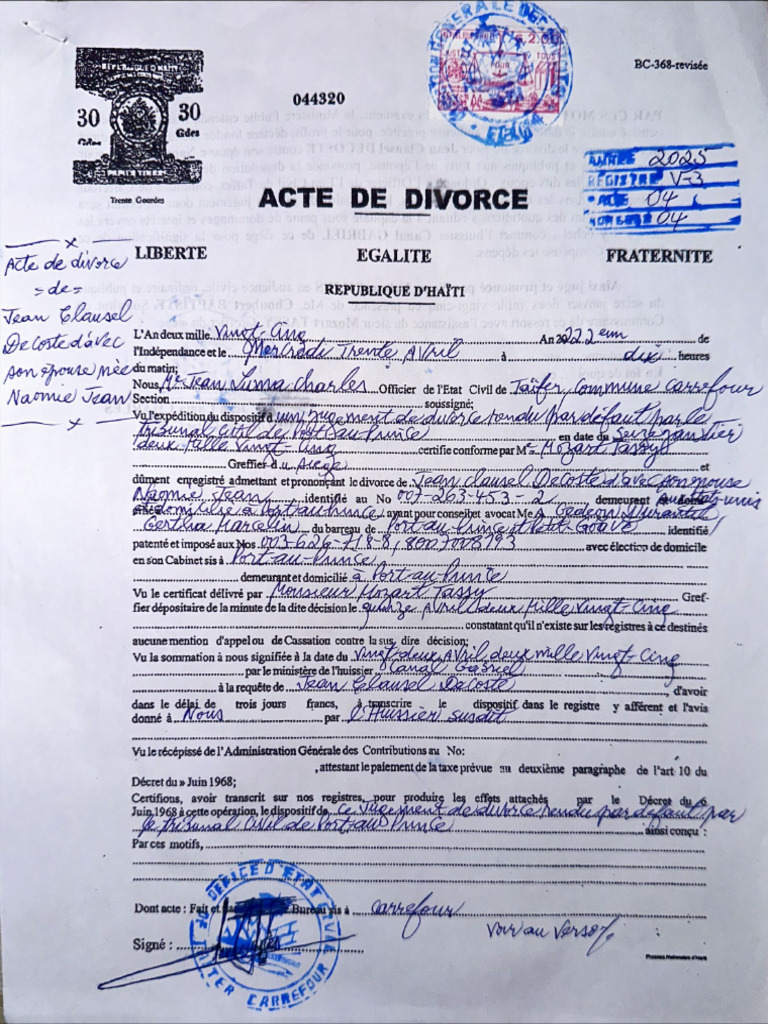 BC-368-revisée
044320
REPUBLIQUE D'HAITI
30 30
Gdes
PAPIER TIMBRE
Trente Gourdes
ANNEE 2025
REGISTRE V-3
ACTE 04
NUMERO 04
ACTE DE DIVORCE
LIBERTE EGALITE FRATERNITE
REPUBLIQUE D'HAÏTI
Acte de divorce
=de=
Jean Clausel
Decoste d'avec
son épouse née
Naomie Jean
L'An deux mille Vingt-Cinq An 222 em de
l'Indépendance et le Mercredi Trente Avril à dix heures
du matin;
Nous, Me Jean Luma Charles Officier de l'Etat Civil de Taïfer, Commune Carrefour
Section soussigné;
Vu l'expédition du dispositif d'un jugement de divorce rendu par défaut par le
Tribunal Civil de Port-au-Prince en date du Seize janvier
deux Mille Vingt-Cinq certifie conforme par Me Mozart Tassy
Greffier du siège et
dûment enregistré admettant et prononçant le divorce de Jean Clausel Decoste d'avec son épouse
Naomie Jean identifié au No 007-263-453-2 demeurant aux Etat-unis
et domicilié à Port-au-Prince, ayant pour conseil et avocat Me s Gedeon
Gertha Marcelin du barreau de Port-au-Prince et Petit-Goâve identifié
patenté et imposé aux Nos 003-626-718-8, 8007008793 avec élection de domicile
en son Cabinet sis à Port-au-Prince
demeurant et domicilié à Port-au-Prince
Vu le certificat délivré par Monsieur Mozart Tassy Gref-
fier dépositaire de la minute de la dite décision le quinze Avril deux Mille Vingt-Cinq
constatant qu'il n'existe sur les registres à ce destinés
aucune mention d'appel ou de Cassation contre la sus dire décision;
Vu la sommation à nous signifiée à la date du Vingt-deux Avril deux mille Vingt-Cinq
par le ministère de l'huissier Canal Gabriel
à la requête de Jean Clausel Decoste, d'avoir
dans le délai de trois jours francs, à transcrire le dispositif dans le registre y afférent et l'avis
donné à Nous par l'Huissier susdit
Vu le récépissé de l'Administration Générale des Contributions au No:
, attestant le paiement de la taxe prévue au deuxième paragraphe de l'art 10 du
Décret du » Juin 1968;
Certifions, avoir transcrit sur nos registres, pour produire les effets attachés par le Décret du 6
Juin 1968 à cette opération, le dispositif de ce jugement de divorce rendu par défaut par
le Tribunal Civil de Port-au-Prince ainsi conçu :
Par ces motifs,
Dont acte : Fait et Bureau sis à Carrefour
Voir au verso
Signé :
OFFICE D'ETAT CIVIL
CARREFOUR
Presses Nationales d'Haïti